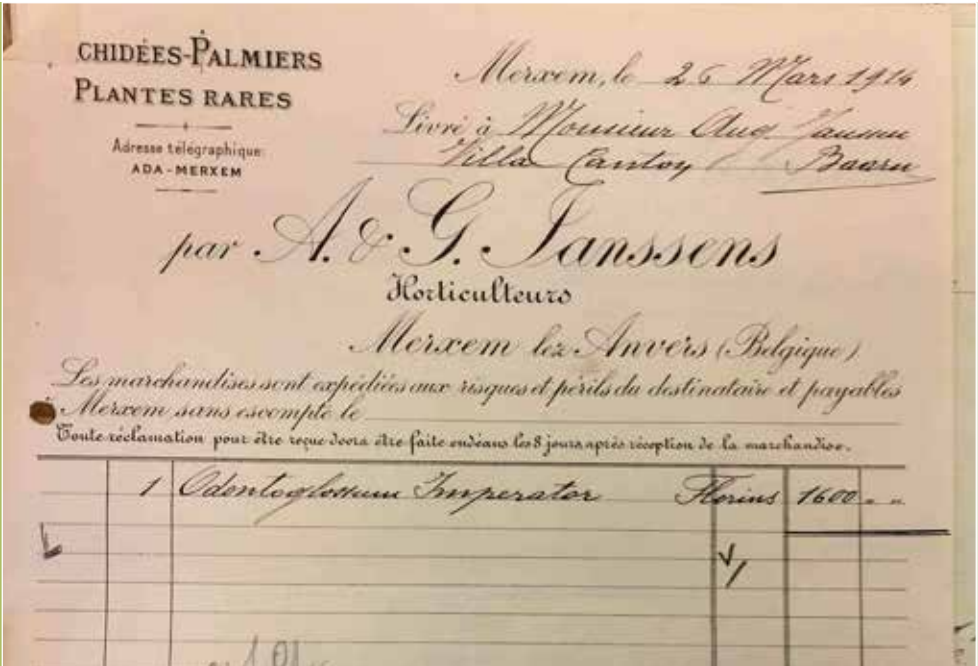 CHIDÉES-PALMIERS
PLANTES RARES
Adresse télégraphique:
ADA-MERXEM
Merxem, le 26 Mars 1914
Livré à Monsieur Aug. Janssen
Villa Canton Baarn
par A. & G. Janssens
Horticulteurs
Merxem lez Anvers (Belgique)
Les marchandises sont expédiées aux risques et périls du destinataire et payables
à Merxem sans escompte le
Toute réclamation pour être reçue devra être faite endéans les 8 jours après réception de la marchandise.
1 Odontoglossum Imperator Florins 1600 " "